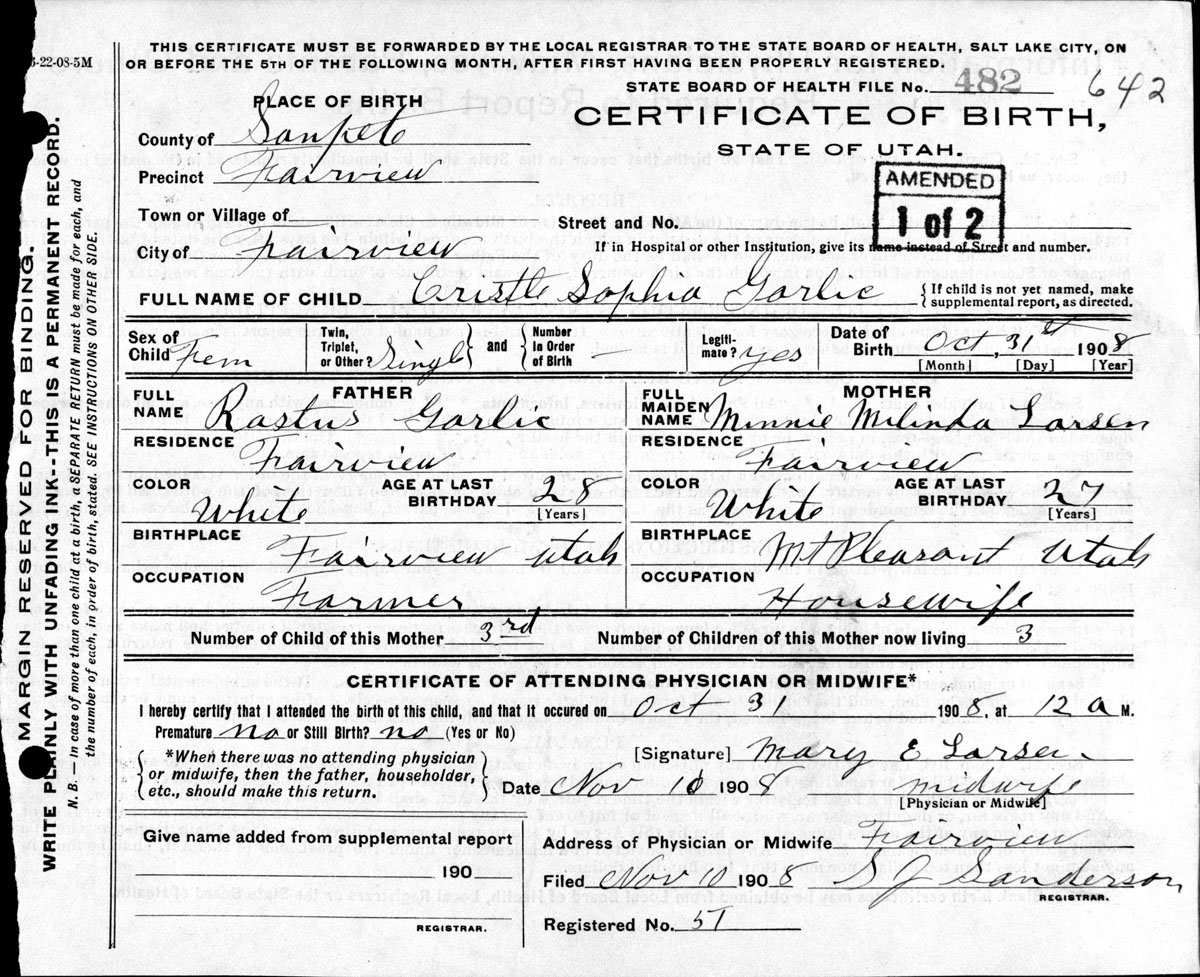 5-22-08-5M
THIS CERTIFICATE MUST BE FORWARDED BY THE LOCAL REGISTRAR TO THE STATE BOARD OF HEALTH, SALT LAKE CITY, ON
OR BEFORE THE 5TH OF THE FOLLOWING MONTH, AFTER FIRST HAVING BEEN PROPERLY REGISTERED.
STATE BOARD OF HEALTH FILE No. 482 642
PLACE OF BIRTH
CERTIFICATE OF BIRTH,
County of Sanpete
STATE OF UTAH.
Precinct Fairview
AMENDED
1 of 2
Town or Village of
Street and No.
City of Fairview
If in Hospital or other Institution, give its name instead of Street and number.
FULL NAME OF CHILD Cristle Sophia Garlic { If child is not yet named, make supplemental report, as directed.
Sex of Child Fem Twin, Triplet, or Other? Single } and { Number In Order of Birth Legiti-mate? yes Date of Birth Oct, 31st 1908
[Month] [Day] [Year]
FATHER
FULL NAME Rastus Garlic
RESIDENCE Fairview
COLOR White AGE AT LAST BIRTHDAY 28 [Years]
BIRTHPLACE Fairview Utah
OCCUPATION Farmer
MOTHER
FULL MAIDEN NAME Minnie Milinda Larsen
RESIDENCE Fairview
COLOR White AGE AT LAST BIRTHDAY 27 [Years]
BIRTHPLACE Mt Pleasant Utah
OCCUPATION Housewife
Number of Child of this Mother 3rd Number of Children of this Mother now living 3
CERTIFICATE OF ATTENDING PHYSICIAN OR MIDWIFE*
I hereby certify that I attended the birth of this child, and that it occured on Oct 3 1908, at 12 a M.
Premature no or Still Birth? no (Yes or No)
{ *When there was no attending physician
or midwife, then the father, householder,
etc., should make this return. }
[Signature] Mary E Larsen
Date Nov 10 1908 midwife
[Physician or Midwife]
Give name added from supplemental report
190
REGISTRAR.
Address of Physician or Midwife Fairview
Filed Nov 10 1908 S J Sanderson
REGISTRAR.
Registered No. 51
MARGIN RESERVED FOR BINDING.
WRITE PLAINLY WITH UNFADING INK--THIS IS A PERMANENT RECORD.
N. B.—In case of more than one child at a birth, a SEPARATE RETURN must be made for each, and
the number of each, in order of birth, stated. SEE INSTRUCTIONS ON OTHER SIDE.